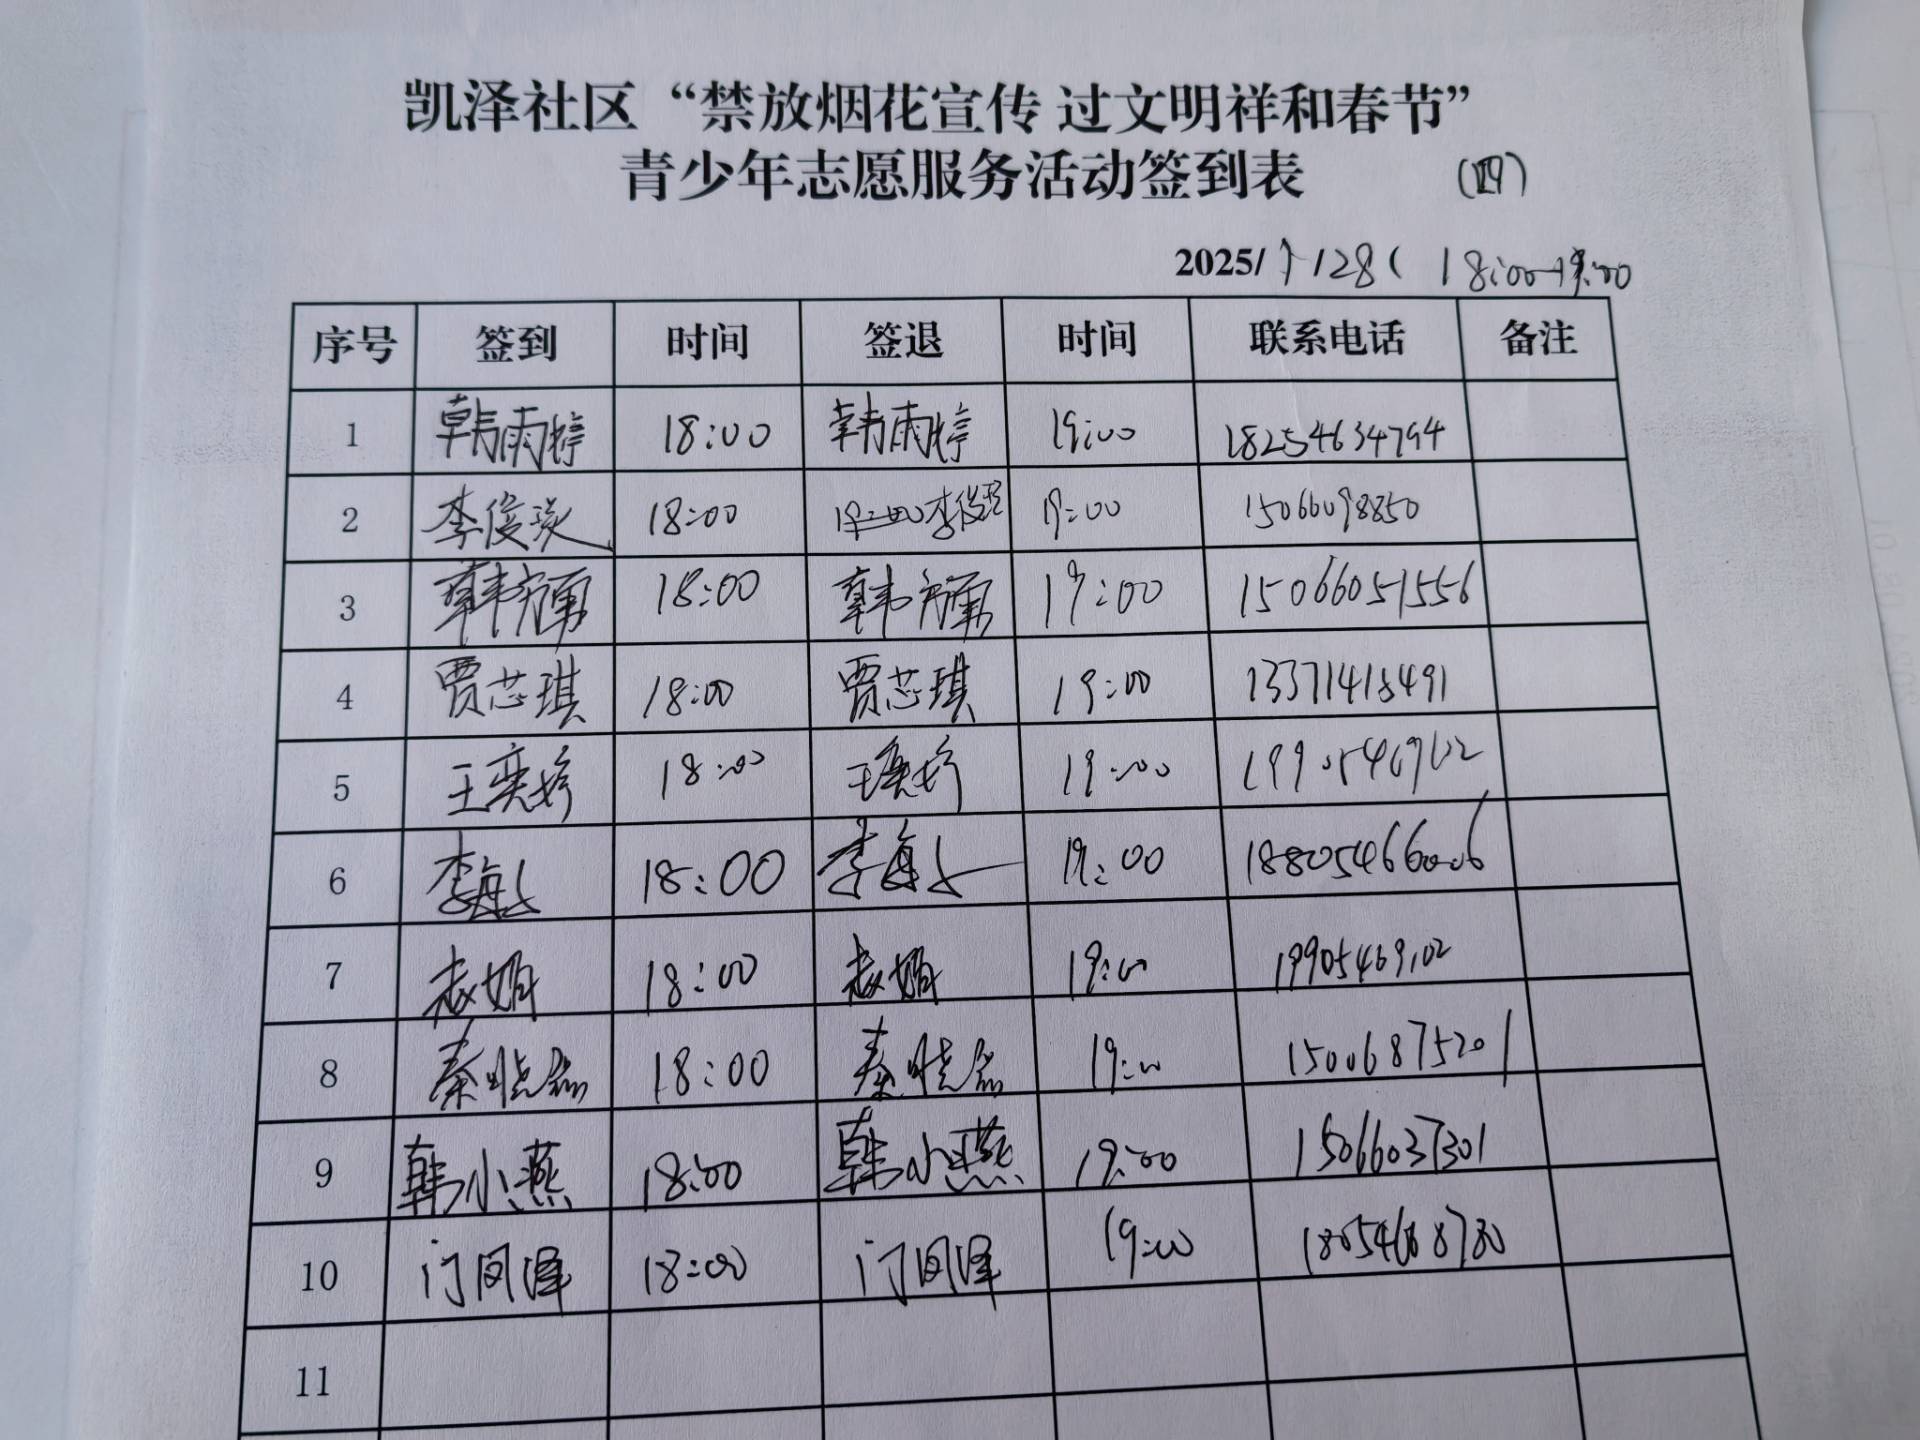 凯泽社区“禁放烟花宣传 过文明祥和春节”
青少年志愿服务活动签到表 (四)
2025/1/28( 18:00-19:00
序号 签到 时间 签退 时间 联系电话 备注
1 韩雨婷 18:00 韩雨婷 19:00 18254634794
2 李俊 18:00 李俊 19:00 15066098850
3 韩 18:00 韩 19:00 15066051556
4 贾芯琪 18:00 贾芯琪 19:00 13371418491
5 王奕婷 18:00 王奕婷 19:00
6 李海 18:00 李海 19:00 18805466006
7 赵娟 18:00 赵娟 19:00 19905469102
8 秦晓磊 18:00 秦晓磊 19:00 15006875201
9 韩小燕 18:00 韩小燕 19:00 15066037301
10 门凤泽 18:00 门凤泽 19:00 18054688780
11